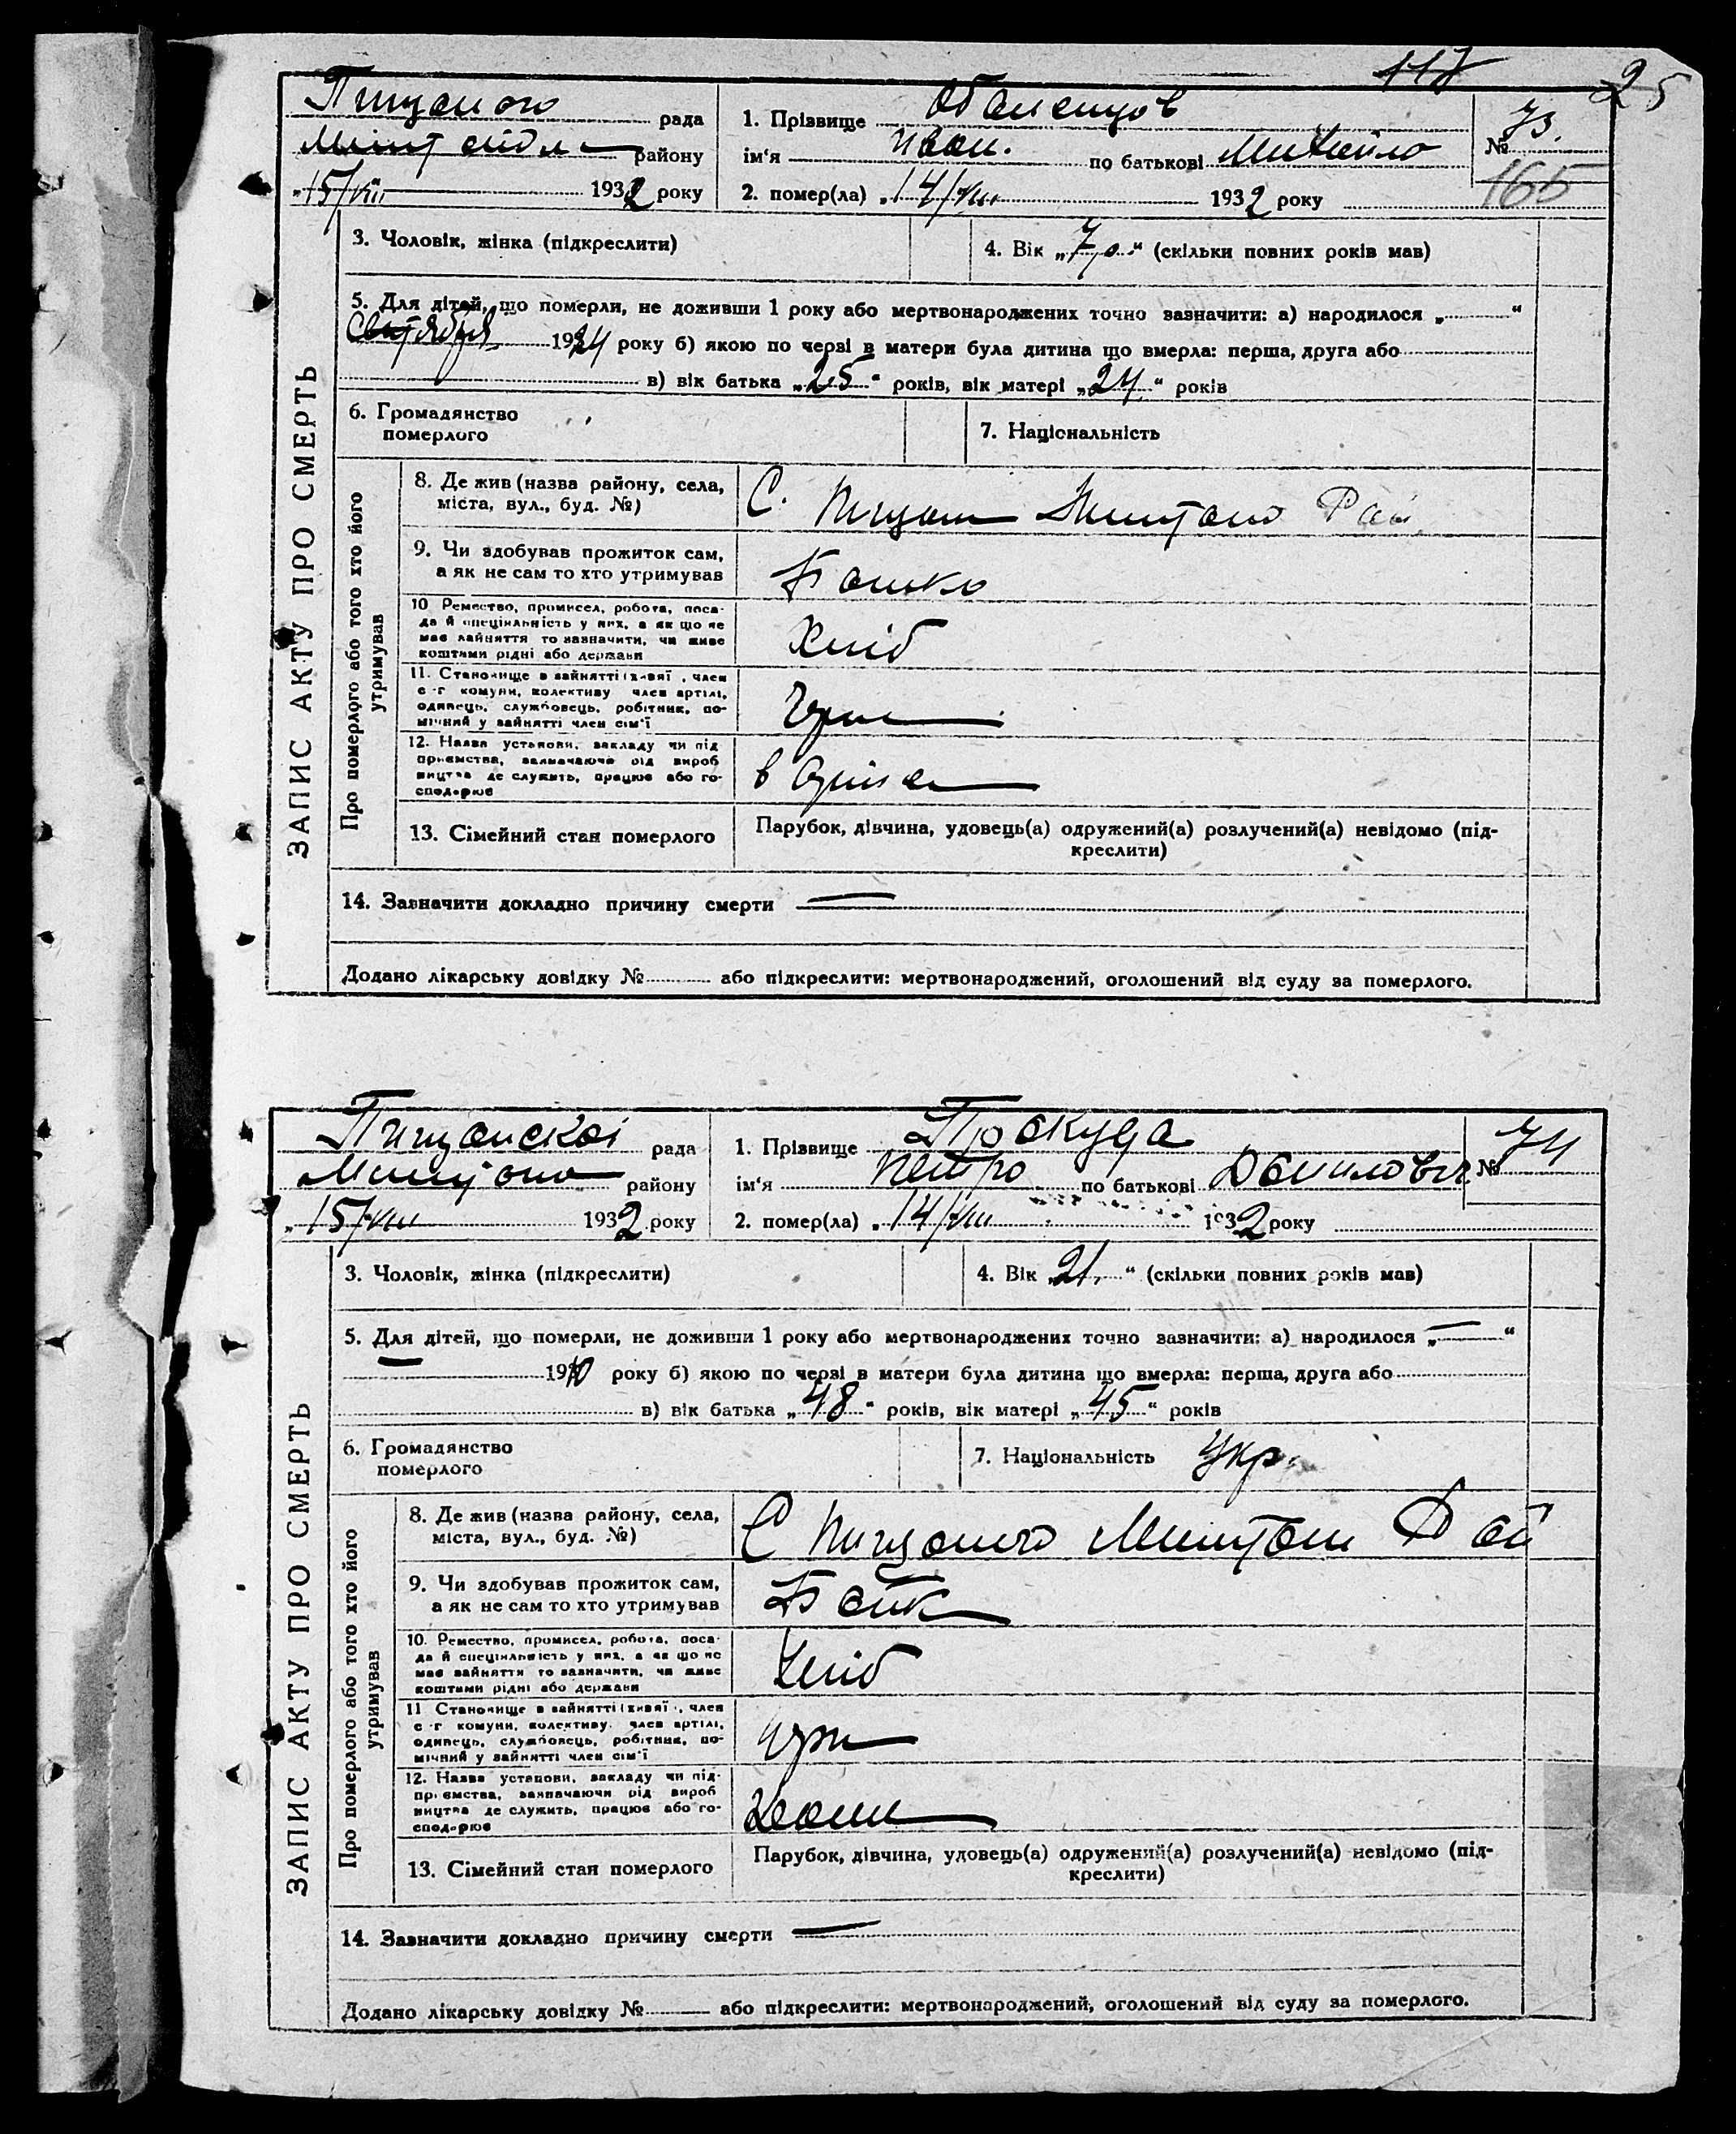 117
25
рада
1. Прізвище
73.
району
ім'я Иван. по батькові Михайло №
165
"15/VIII 1932 року
2. помер(ла) "14/VIII 1932 року
3. Чоловік, жінка (підкреслити)
4. Вік "7 " (скільки повних років мав)
5. Для дітей, що померли, не доживши 1 року або мертвонароджених точно зазначити: а) народилося " "
Сентября 1924 року б) якою по черзі в матери була дитина що вмерла: перша, друга або
в) вік батька "25" років, вік матері "24" років
6. Громадянство
померлого
7. Національність
ЗАПИС АКТУ ПРО СМЕРТЬ
Про померлого або того хто його
утримував
8. Де жив (назва району, села,
міста, вул., буд. №)
С. Рай
9. Чи здобував прожиток сам,
а як не сам то хто утримував
Батько
10. Ремество, промисел, робота, поса-
да й спеціяльність у них, а як що не
має зайняття то зазначити, чи живе
коштами рідні або держави
Хліб
11. Становище в зайнятті (хазяї, член
с-г комуни, колективу член артілі,
одинець, службовець, робітник, по-
мічний у зайнятті член сім'ї
12. Назва установи, закладу чи під
приємства, зазначаючи рід вироб
ництва де служить, працює або го-
сподарює
в
13. Сімейний стан померлого
Парубок, дівчина, удовець(а) одружений(а) розлучений(а) невідомо (під-
креслити)
14. Зазначити докладно причину смерти —
Додано лікарську довідку № або підкреслити: мертвонароджений, оголошений від суду за померлого.
Пищанскої рада
1. Прізвище Прокуда
74
району
ім'я Петро по батькові Данилович №
"15/VIII 1932 року
2. помер(ла) "14/VIII 1932 року
3. Чоловік, жінка (підкреслити)
4. Вік "21." (скільки повних років мав)
5. Для дітей, що померли, не доживши 1 року або мертвонароджених точно зазначити: а) народилося "—"
— 1910 року б) якою по черзі в матери була дитина що вмерла: перша, друга або
в) вік батька "48" років, вік матері "45" років
6. Громадянство
померлого
7. Національність Укр.
ЗАПИС АКТУ ПРО СМЕРТЬ
Про померлого або того хто його
утримував
8. Де жив (назва району, села,
міста, вул., буд. №)
С Рай
9. Чи здобував прожиток сам,
а як не сам то хто утримував
Батк
10. Ремество, промисел, робота, поса-
да й спеціяльність у них, а як що не
має зайняття то зазначити, чи живе
коштами рідні або держави
Хліб
11 Становище в зайнятті (хазяї, член
с-г комуни, колективу, член артілі,
одинець, службовець, робітник, по-
мічний у зайнятті член сім'ї
12. Назва установи, закладу чи під-
приємства, зазначаючи рід вироб
ництва де служить, працює або го-
сподарює
13. Сімейний стан померлого
Парубок, дівчина, удовець(а) одружений(а) розлучений(а) невідомо (під-
креслити)
14. Зазначити докладно причину смерти —
Додано лікарську довідку № або підкреслити: мертвонароджений, оголошений від суду за померлого.